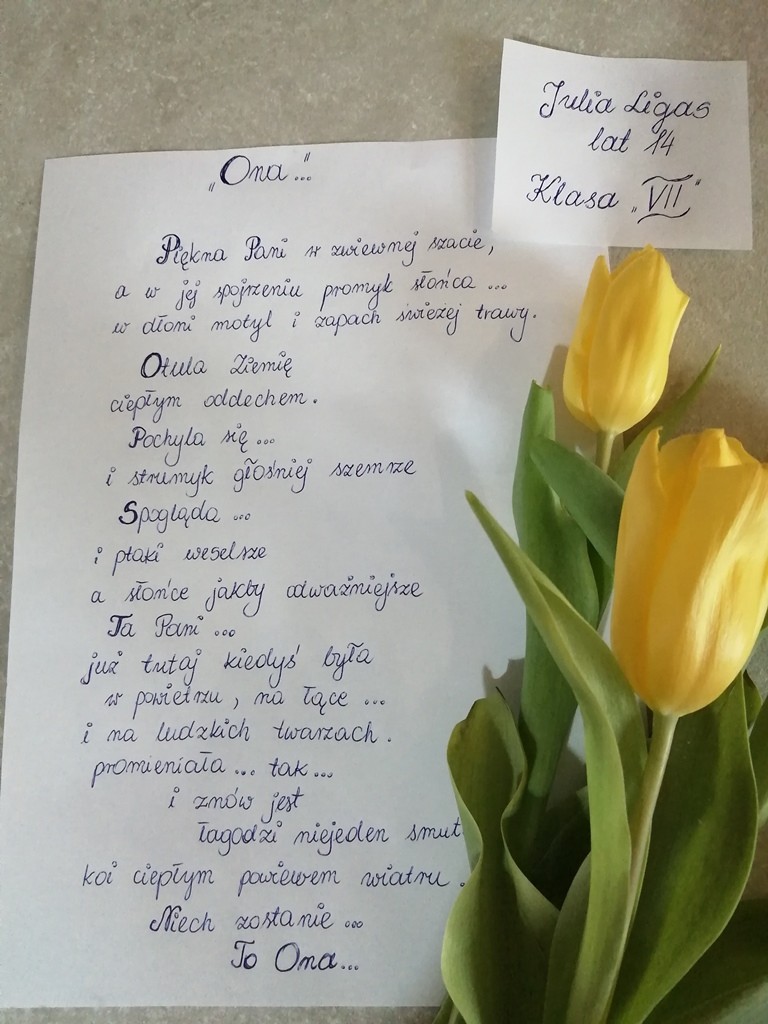 „Ona..."
Piękna Pani w zwiewnej szacie,
a w jej spojrzeniu promyk słońca ...
w dłoni motyl i zapach świeżej trawy.
Otula Ziemię
ciepłym oddechem.
Pochyla się ...
i strumyk głośniej szemrze
Spogląda ...
i ptaki weselsze
a słońce jakby odważniejsze
Ta Pani ...
już tutaj kiedyś była
w powietrzu, na łące ...
i na ludzkich twarzach.
promieniała ... tak ...
i znów jest
łagodzi niejeden smut
koi ciepłym powiewem wiatru.
Niech zostanie ...
To Ona...
Julia Ligas
lat 14
Klasa „VII"